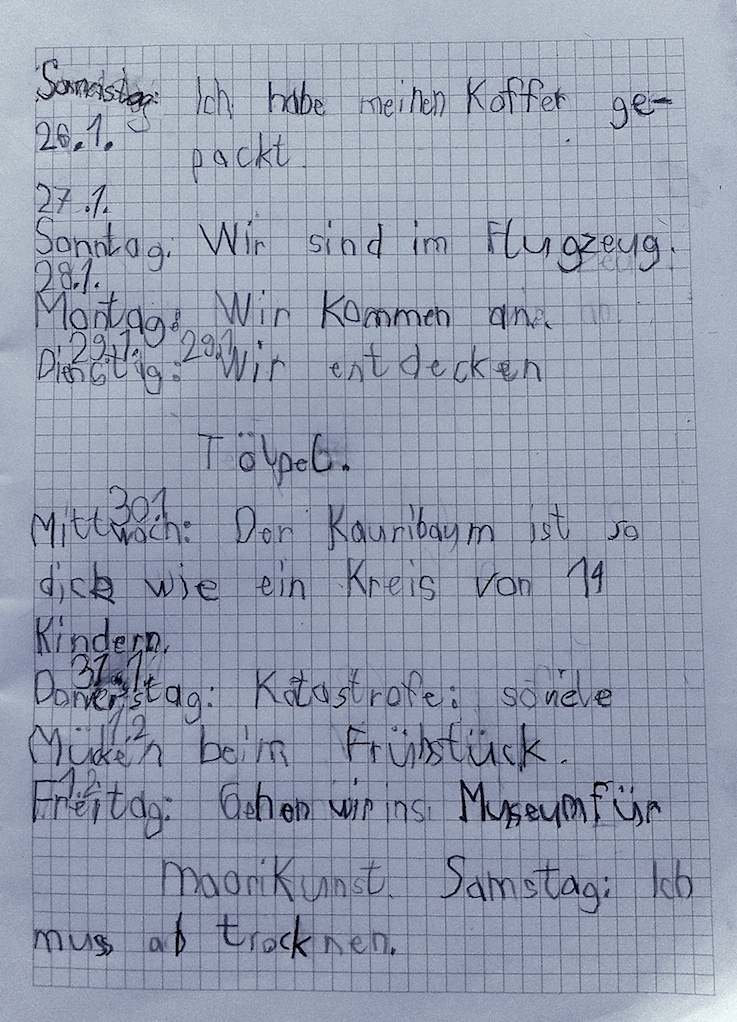 Samstag: Ich habe meinen Koffer ge-
26.1.
packt.
27.1.
Sonntag: Wir sind im Flugzeug.
28.1.
Montag: Wir kommen an.
29.1. 29.1
Dienstag: Wir entdecken
Tölpel.
30.1
Mittwoch: Der Kauribaum ist so
dick wie ein Kreis von 14
Kindern.
31.1.
Donerstag: Katastrofe: soviele
1.2
Mücken beim Frühstück.
1.2
Freitag: Gehen wir ins Museum für
maori Kunst. Samstag: Ich
muss ab trocknen.